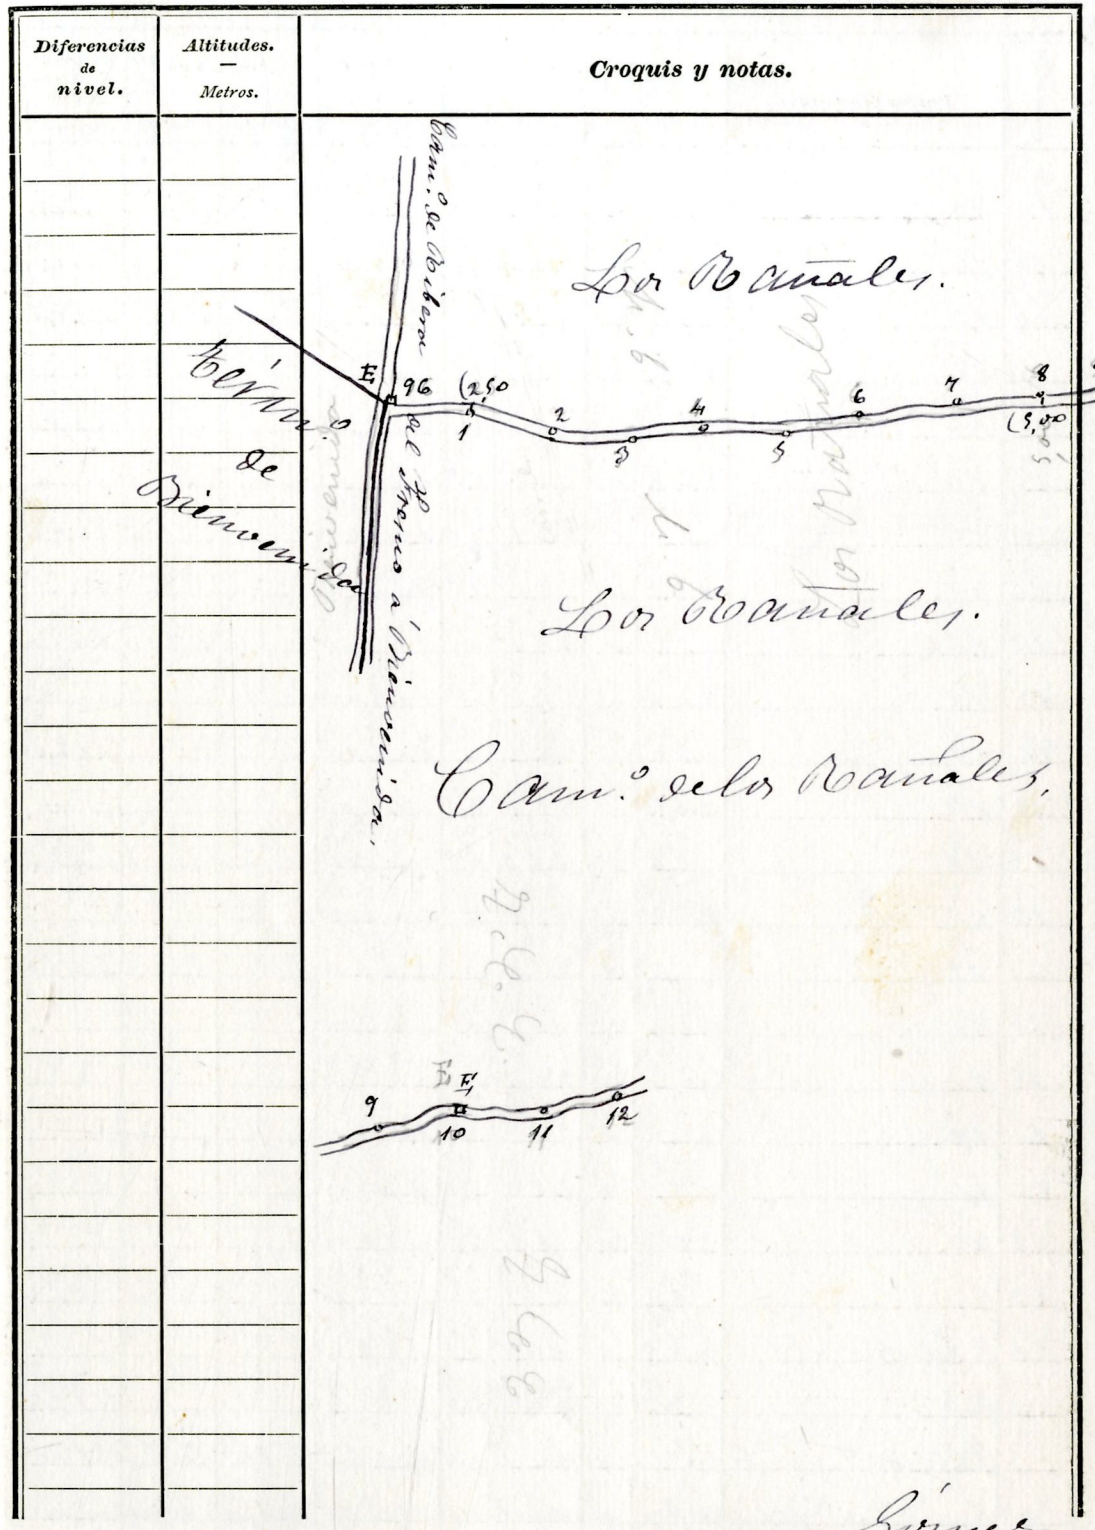 Diferencias
de
nivel.
Altitudes.
—
Metros.
Croquis y notas.
Cam.º de Ribera del Fresno a Bienvenida.
Los Rañales.
Térm.º
de
Bienvenida
E 96 (2,50
1 2 3 4 5 6 7 8
(5,00
Los Rañales.
Cam.º de los Rañales.
E
9 10 11 12